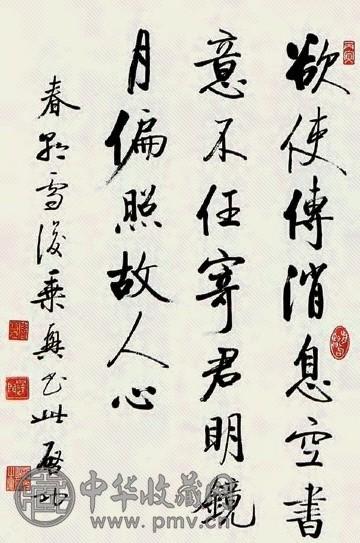 欲使傳消息空書
意不任寄君明鏡
月偏照故人心
春雪後乘興书此 啓功
中华收藏网
www.pmv.cn